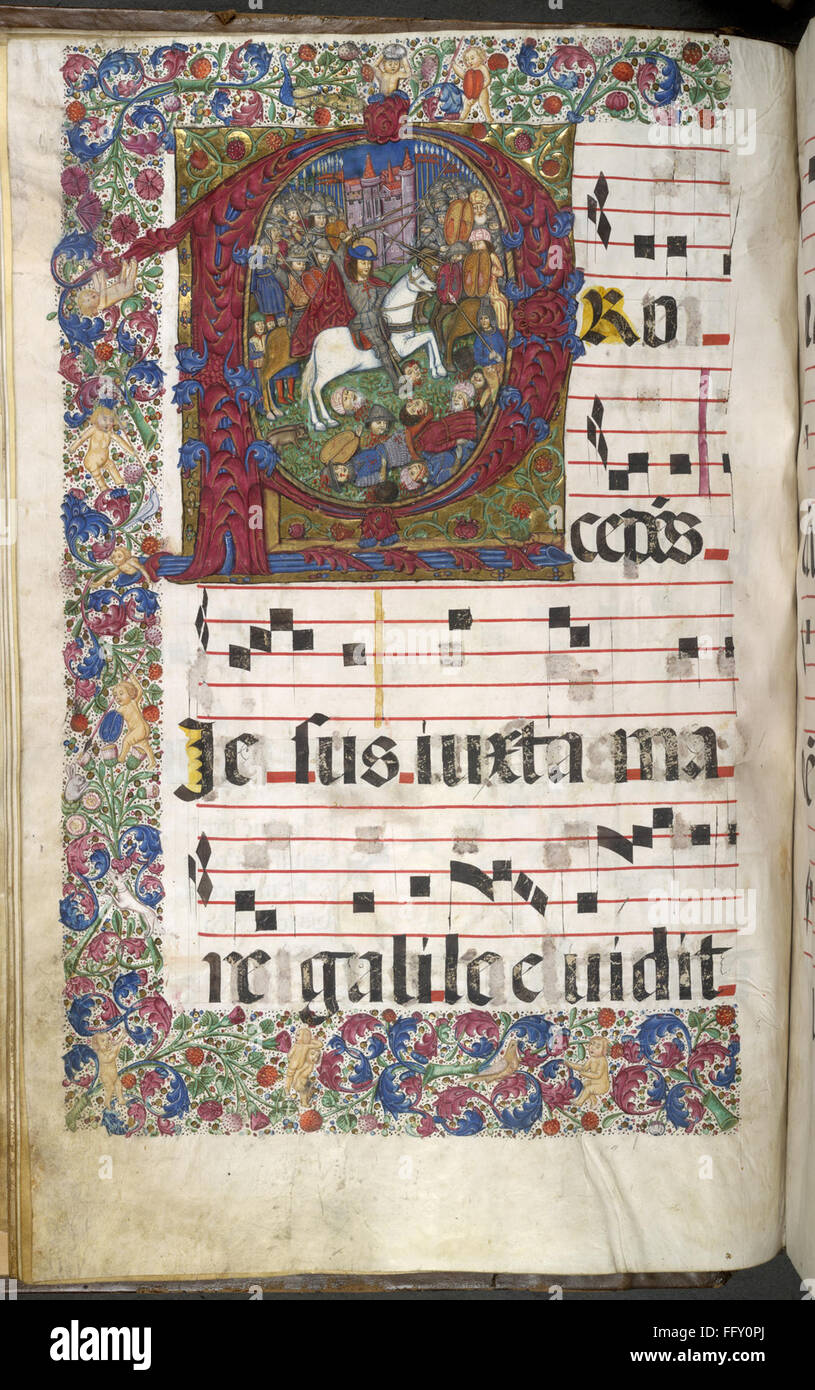 PRO
Je sus iuxta ma
re galilee uidit
alamy
Image ID: FFY0PJ
www.alamy.com